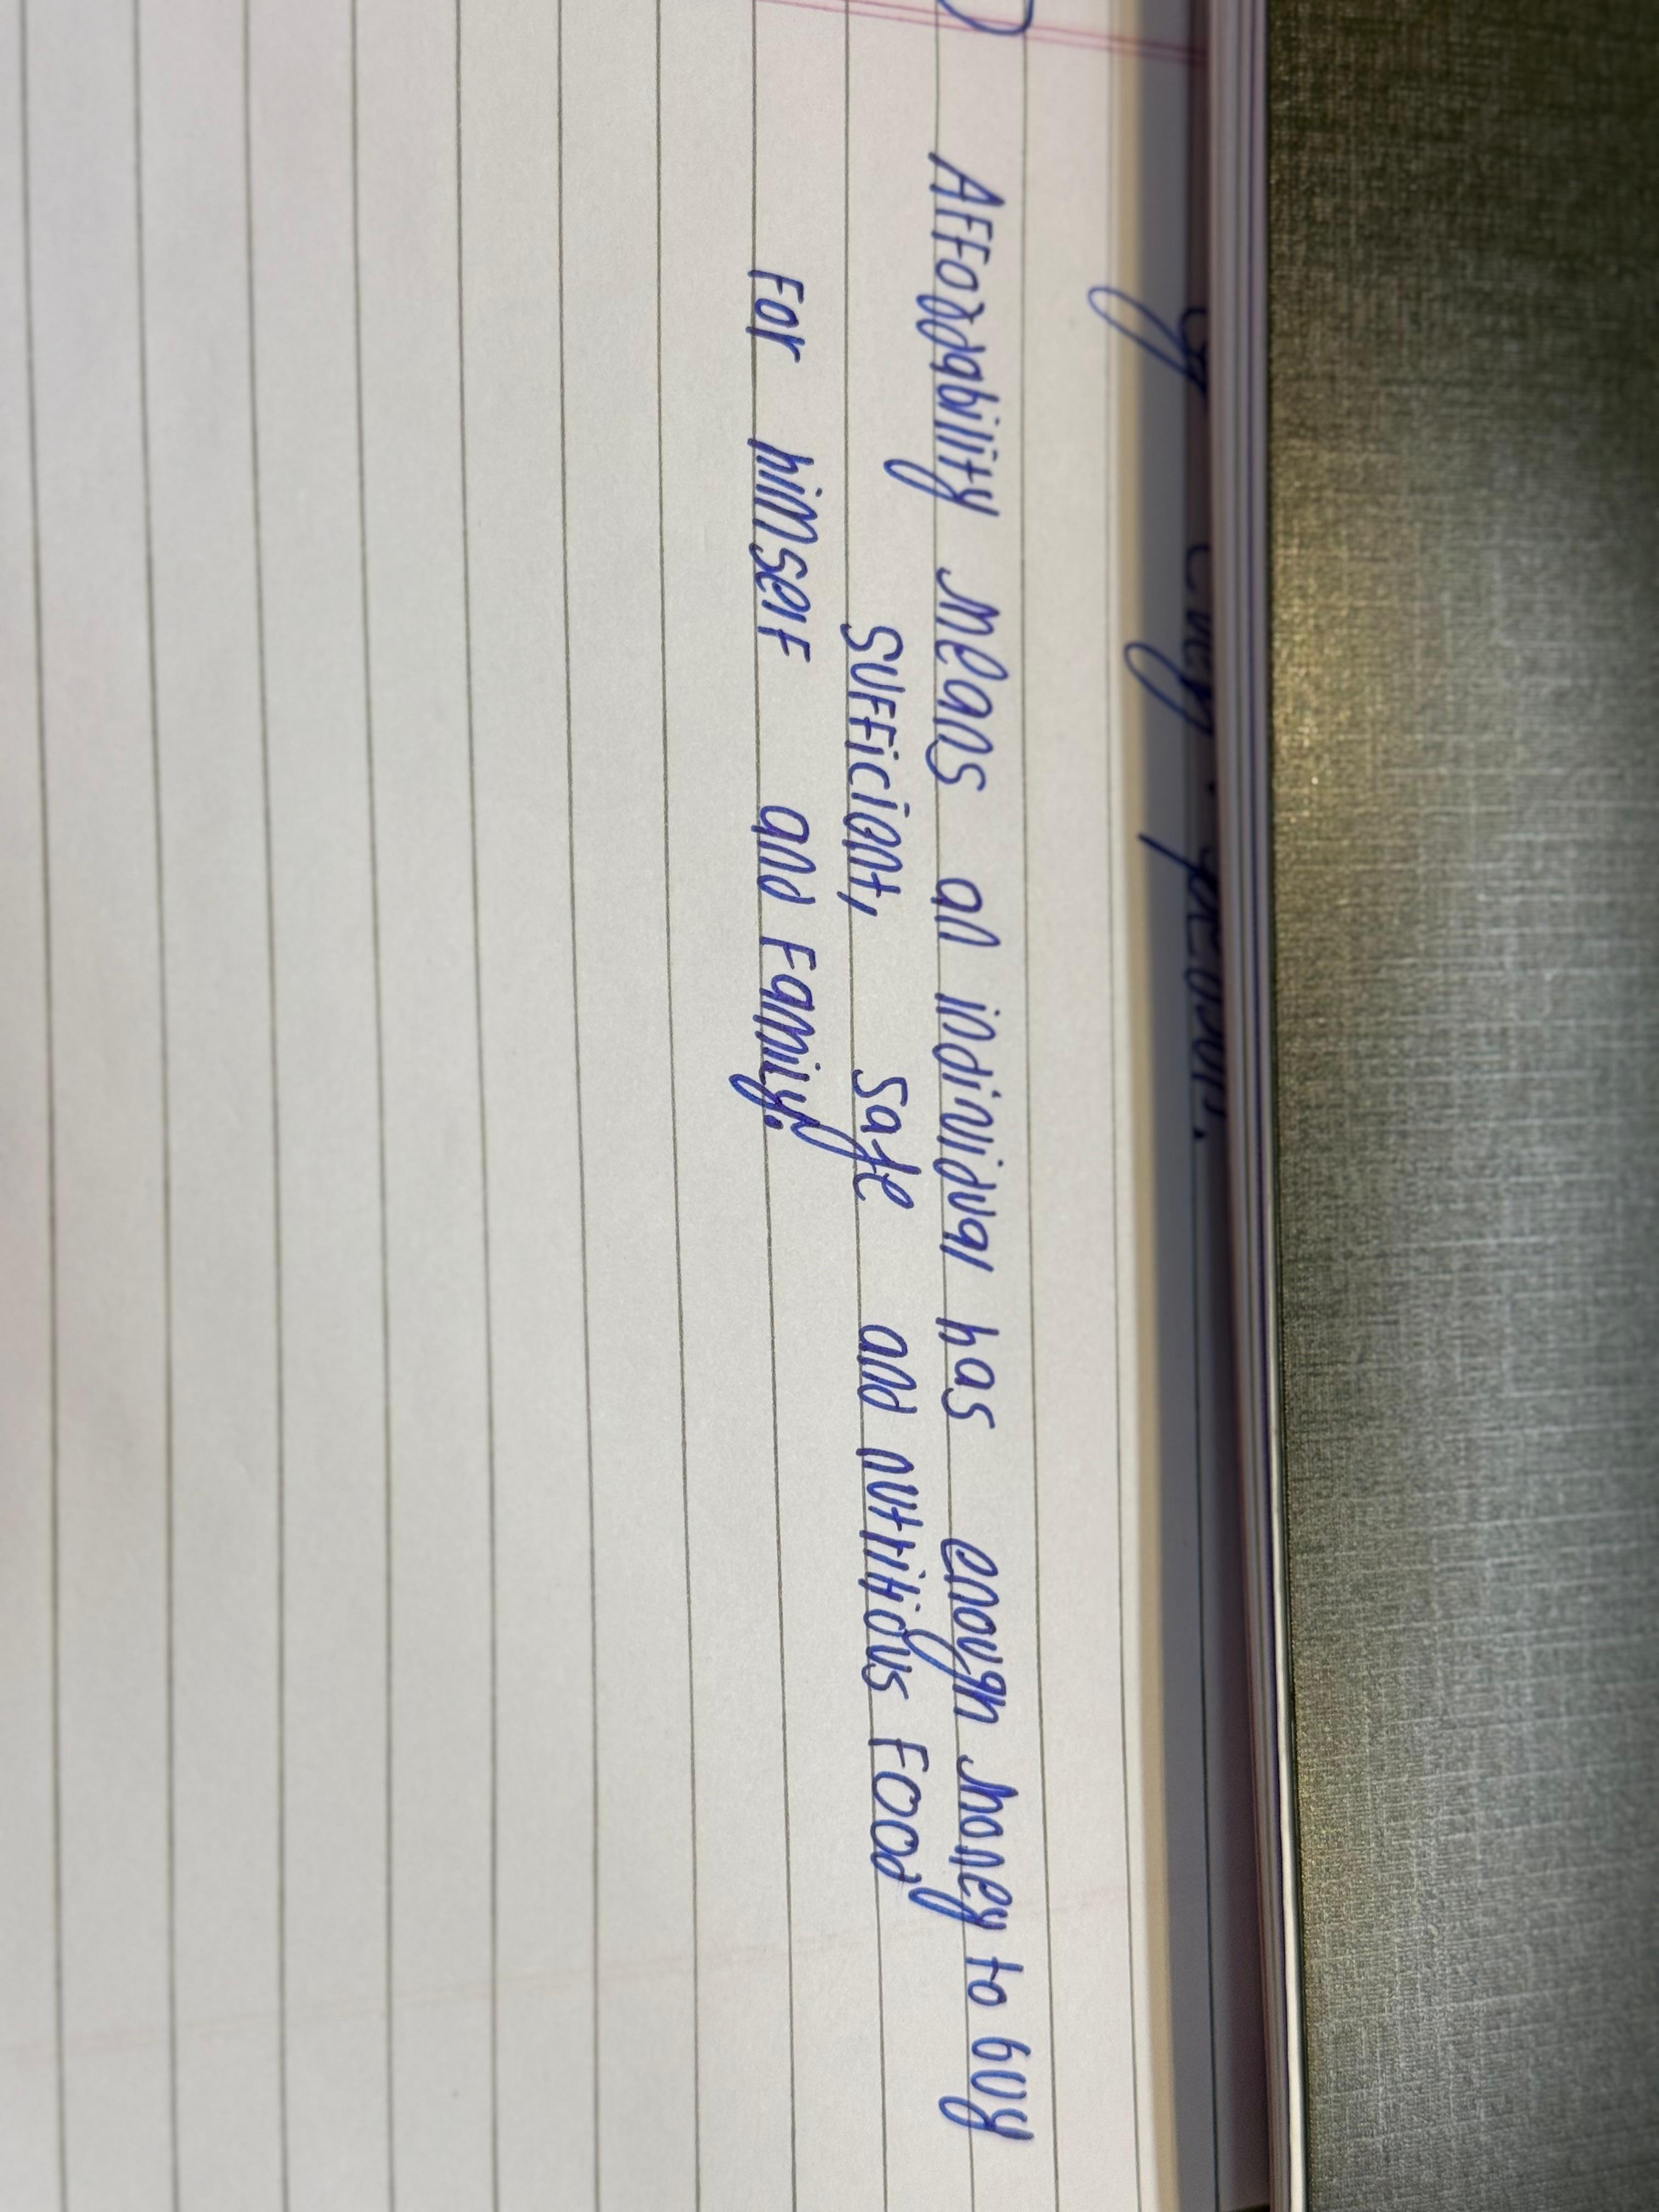 every person.
Affoddability means an individual has enough money to buy
sufficiant, safe and nutritious food
for himself and family.